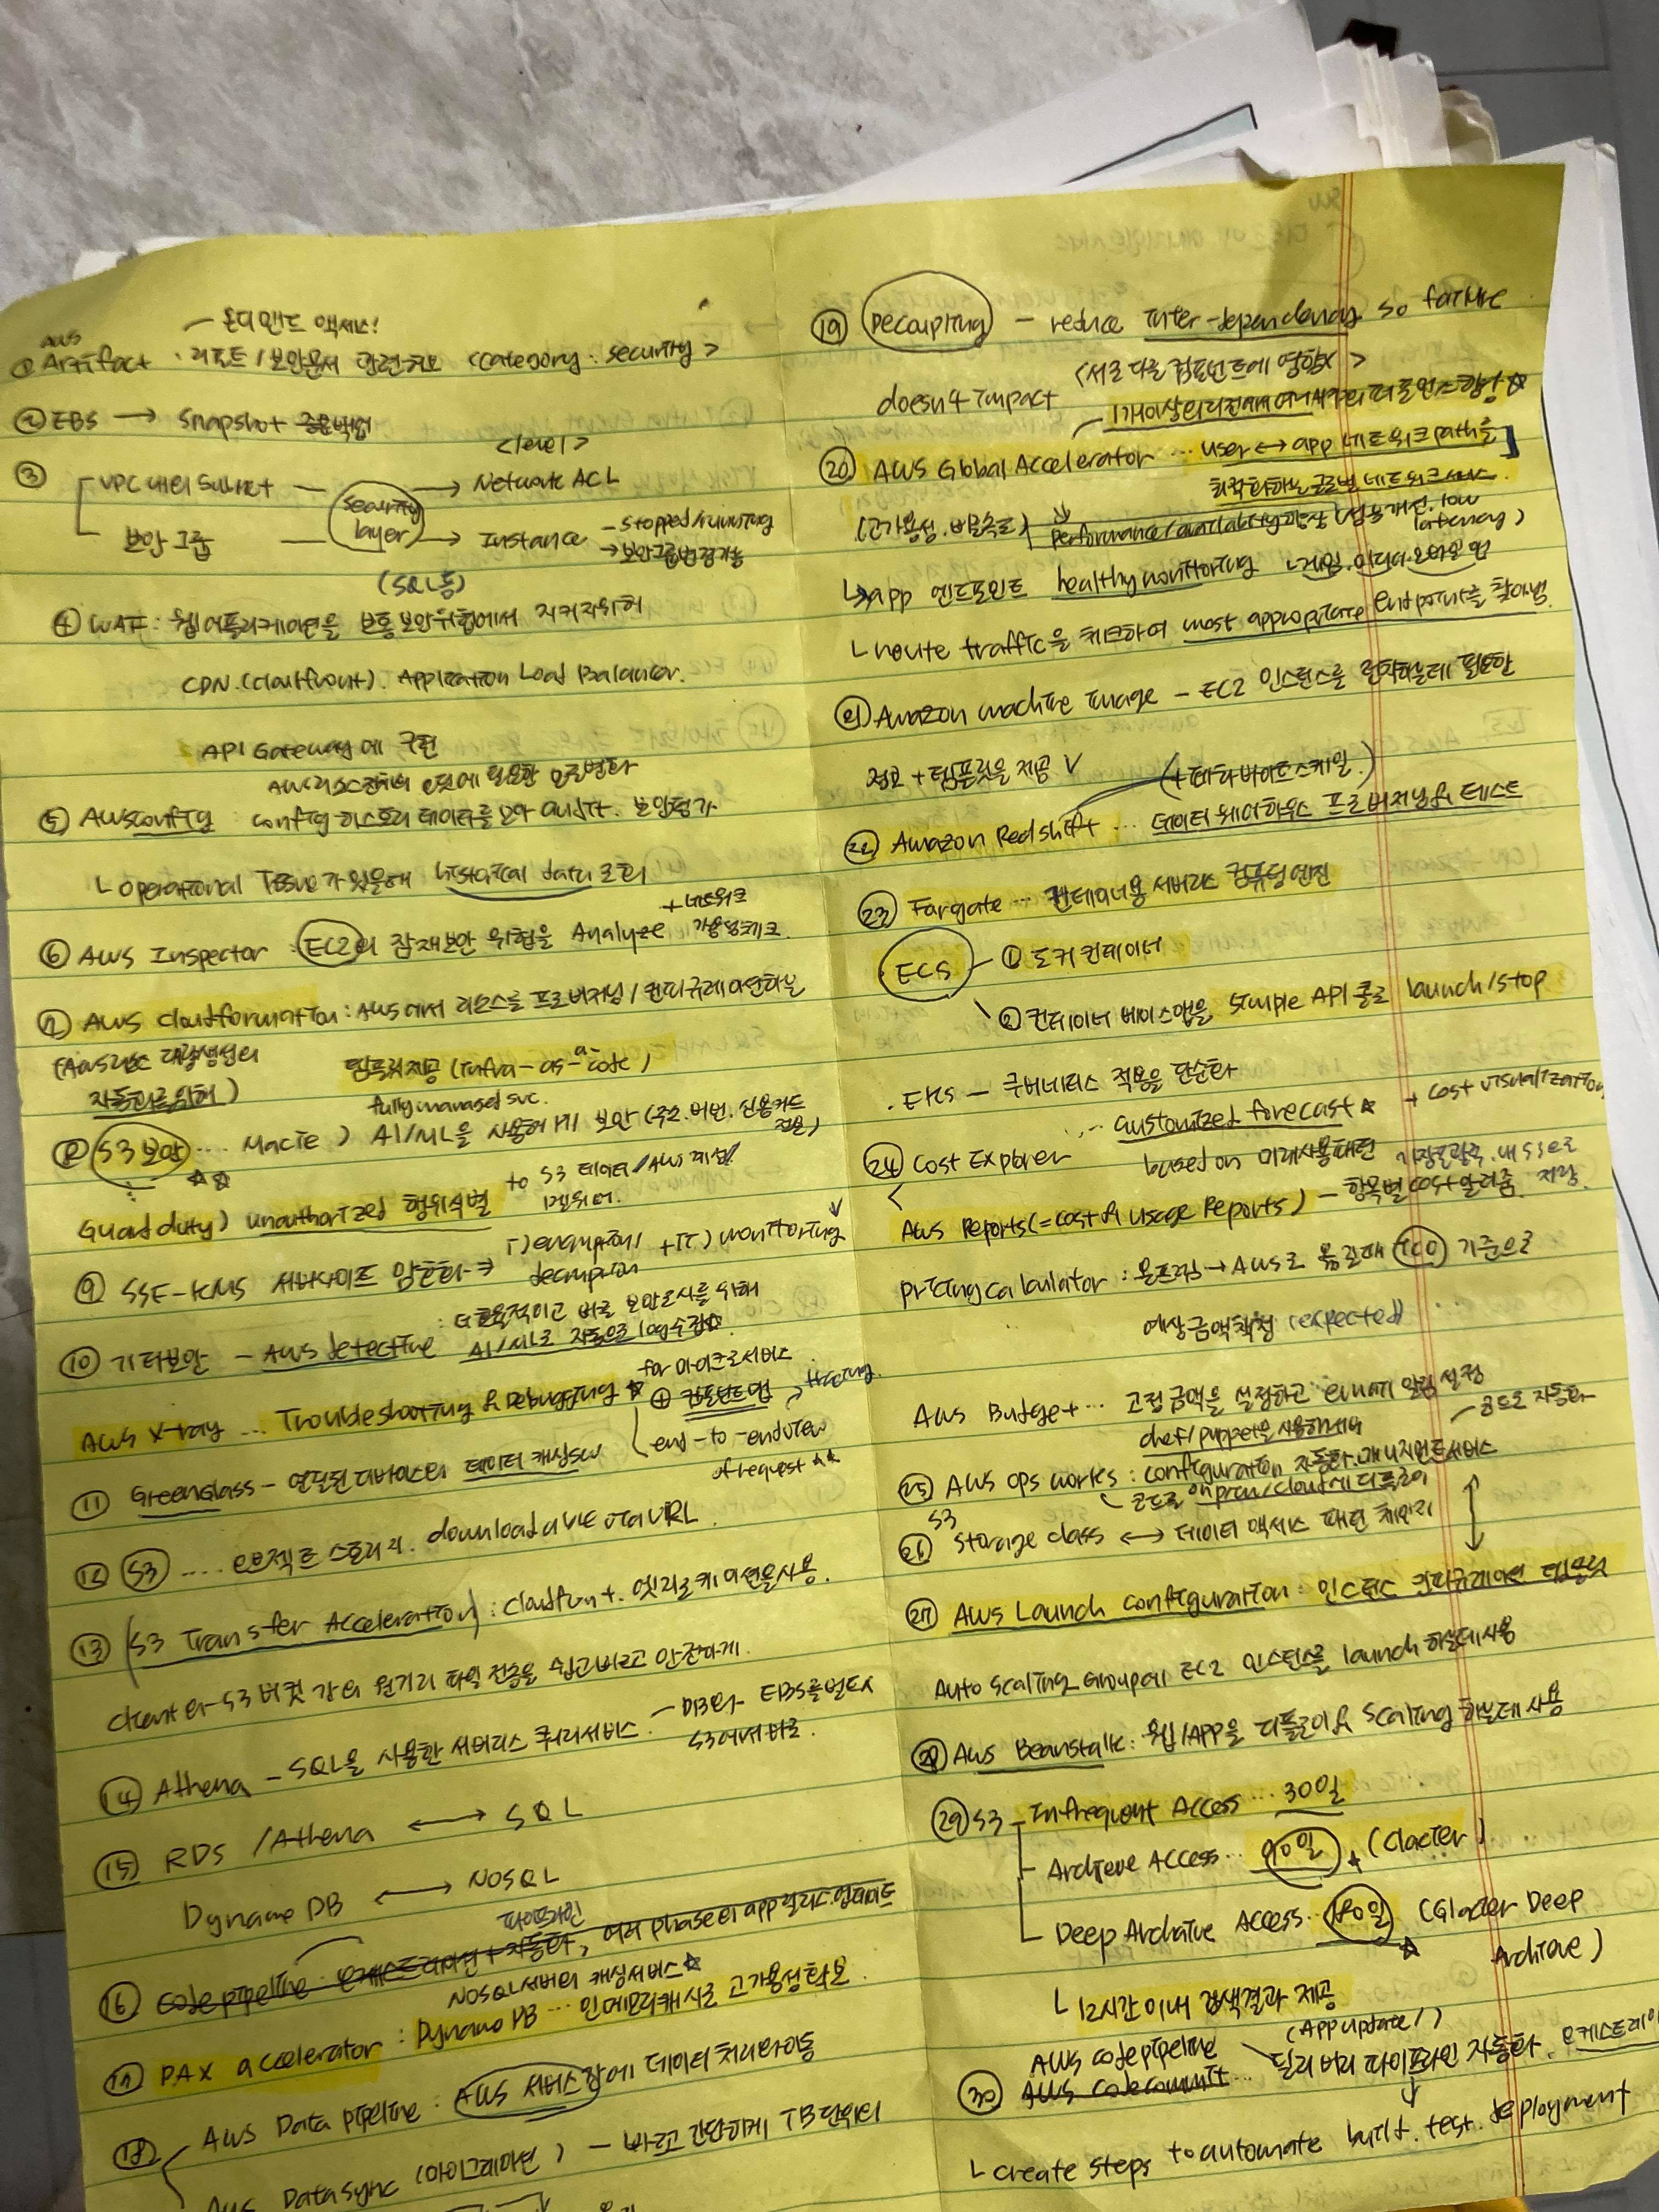 AWS
- 온디맨드 액세스!
① Artifact · 리포트/보안문서 <category: security>
② EBS → snapshot 증분백업
③ VPC 내의 Subnet - security layer → <level> Network ACL
보안그룹 - → Instance - stopped/running
→ 보안그룹변경가능
(SQL등)
④ WAF: 웹어플리케이션을 보통 보안위협에서 지키기위해
CDN.(cloudfront). Application Load Balancer.
API Gateway에 구현
⑤ AWS config : config 히스토리 데이터를 모아 audit. 보안평가
└ operational Issue가 있을때 historical data 조회
⑥ AWS Inspector : EC2의 잠재보안 위협을 Analyze + 네트워크
⑦ AWS cloudformation : AWS에서 리소스를 프로비저닝/컨피규레이션하는
(AWS리소스 대량생성의
자동화를위해)
템플릿제공 (infra-as-a-code)
fully managed svc.
⑧ S3 보안 .... Macie ) AI/ML을 사용해 개인 보안 (주소.번호.신용카드
Guardduty) unauthorized 행위식별 to S3 데이터/AWS계정/
⑨ SSE-KMS 서버사이드 암호화 → I) encryption/ decryption + II) monitoring
: 효율적이고 빠른 보안조사를 위해
⑩ 기타보안 - AWS detective AI/ML로 자동으로 log수집☆
AWS X-ray ... Troubleshooting & Debugging ☆ for 마이크로서비스
⊕ 컴포넌트맵 → tracing
end-to-end view
of request ☆☆
⑪ Greenglass - 연결된 디바이스의 데이터 캐싱 SW
⑫ S3 .... 오브젝트 스토리지. download a vie via URL
⑬ (S3 Transfer Acceleration) : cloudfront. 엣지로케이션을사용.
client와-S3 버킷 간의 원거리 파일 전송을 쉽고빠르고 안전하게.
⑭ Athena - SQL을 사용한 서버리스 쿼리서비스.
S3에서 바로.
⑮ RDS /Athena ↔ SQL
Dynamo DB ↔ NOSQL
파이프라인
⑯ codepipeline : 오케스트레이션+자동화, 여러 phase의 app 릴리스.업데이트
NOSQL서버의 캐싱서비스☆
⑰ DAX accelerator : Dynamo DB ... 인메모리캐시로 고가용성확보.
⑱ AWS Data pipeline : AWS 서비스간에 데이터 처리와이동
AWS DataSync (마이그레이션) - 빠르고 간단하게 TB단위의
⑲ Decoupling - reduce Inter-dependency so failure
doesn't impact <서로 다른 컴포넌트에 영향X>
- 1개이상의리전에서 퍼포먼스향상☆
⑳ AWS Global Accelerator ... user ↔ app 네트워크path를
최적화하는 글로벌 네트워크서비스.
(고가용성.비용속도) performance/availability향상 (성능개선. low latency)
↳ app 엔드포인트 healthy monitoring
└ route traffic을 체크하여 most appropriate endpoint를 찾아냄.
㉑ Amazon machine image - EC2 인스턴스를 런치하는데 필요한
정보 + 템플릿을 제공 V
(+페타바이트스케일.)
㉒ Amazon Redshift ... 데이터웨어하우스 프로비저닝& 테스트
㉓ Fargate ... 컨테이너용 서버리스 컴퓨팅엔진
ECS - ① 도커 컨테이너
② 컨테이너 베이스앱을 simple API콜로 launch/stop
. EKS - 쿠버네티스 적용을 단순화
... customized forecast ☆ + cost visualization
㉔ Cost Explorer based on 미래사용패턴
AWS Reports (=cost & usage Reports) - 항목별 cost알려줌.
pricing calculator : 온프렘 → AWS로 옮길때 TCO 기준으로
예상금액책정 (expected)
AWS Budget ... 고정금액을 설정하고 email 알림 설정
chef/puppet을 사용하여
- 코드로 자동화
㉕ AWS ops works : configuration 자동화.매니지먼트서비스
└ 코드로 on prem/cloud에 디플로이
S3
㉖ storage class ↔ 데이터 액세스 패턴
㉗ AWS Launch configuration : 인스턴스 컨피규레이션 템플릿
Auto Scaling Group에 EC2 인스턴스를 launch 하는데사용
㉘ AWS Beanstalk : 웹/APP을 디플로이& scaling 하는데 사용
㉙ S3 - Infrequent Access ... 30일
Archieve Access ... 90일 (Glacier)
Deep Archaive Access ... 180일 ☆ (Glacier Deep
Archieve)
└ 12시간이내 검색결과 제공
AWS codepipeline (App update/)
㉚ AWS codecommit ... 딜리버리 파이프라인 자동화. 오케스트레이
└ create steps to automate built. test. deployment